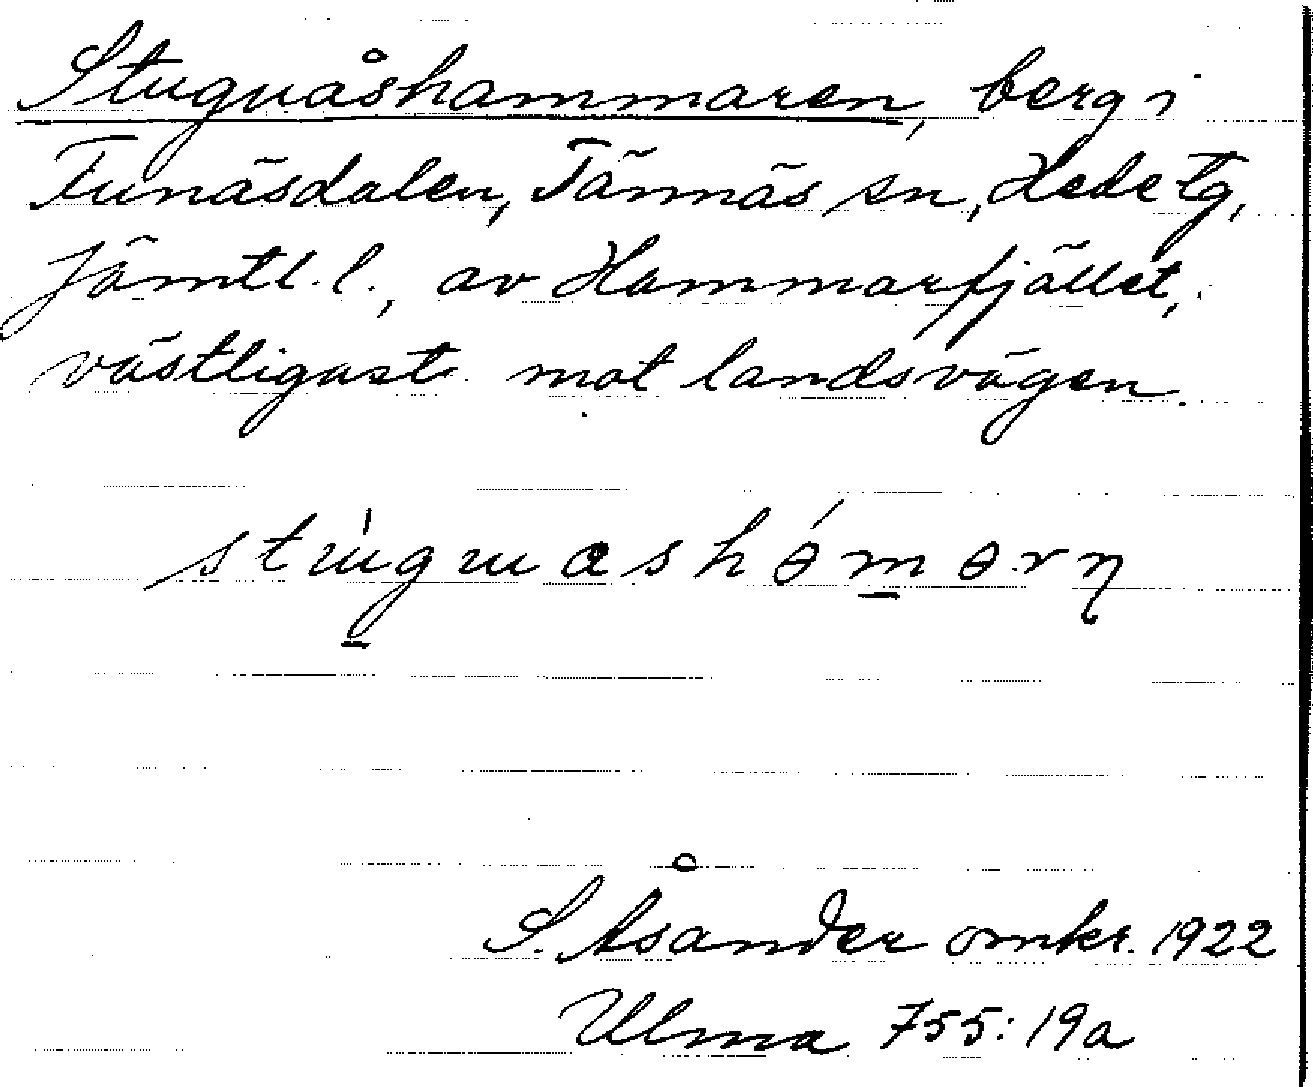 Stuguåshammaren, berg i
Funäsdalen, Tännäs sn, Hede tg,
Jämtl. l., av Hammarfjället,
västligast mot landsvägen.
S. Åsander omkr. 1922
Ulma 755:19a